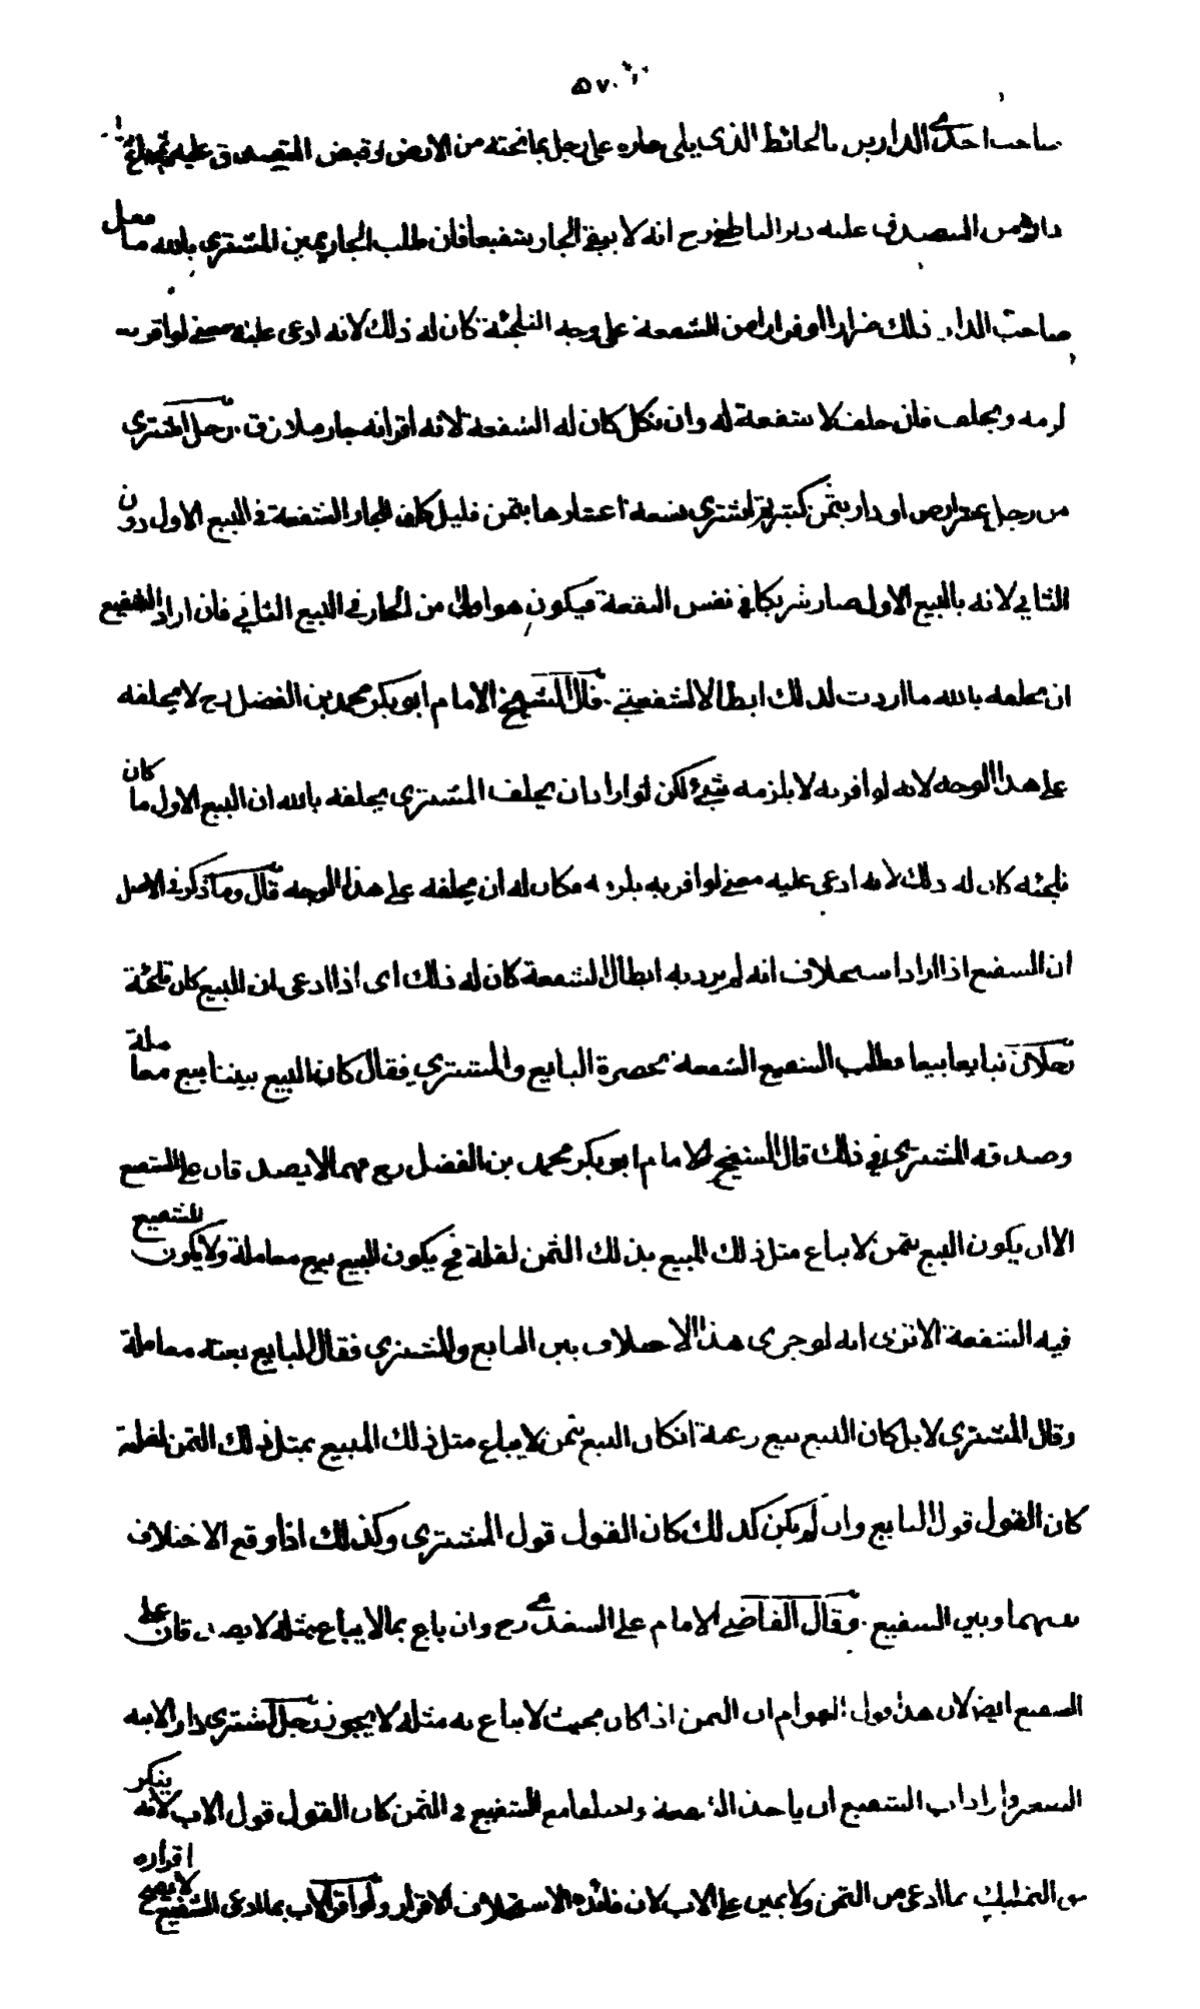 ٥٧٠
صاحب احدى الدارين بالحائط الذى يلى جاره على رجل بما تحته من الارض وقبض المتصدق عليه ثم باع
داره من المتصدق عليه ذكر الناطفى رح انه لا يبقى الجار شفيعا فان طلب الجار يمين المشترى بالله ما فعل
صاحب الدار ذلك ضرارا او فرارا من الشفعة على وجه التلجئة كان له ذلك لانه ادعى عليه معنى لو اقر به
لزمه ويحلف فان حلف لا شفعة له وان نكل كان له الشفعة لانه اقر انه جار ملازق . رجل اشترى
من رجل عشر ارض او دار بثمن كثير ثم اشترى تسعة اعشارها بثمن قليل كان للجار الشفعة فى البيع الاول دون
الثانى لانه بالبيع الاول صار شريكا فى نفس البقعة فيكون هو اولى من الجار فى البيع الثانى فان اراد الشفيع
ان يحلفه بالله ما اردت لذلك ابطالا لشفعتى . قال الشيخ الامام ابو بكر محمد بن الفضل رح لا يحلفه
على هذا الوجه لانه لو اقر به لا يلزمه شئ لكن لو اراد ان يحلف المشترى يحلفه بالله ان البيع الاول ما كان
تلجئه كان له ذلك لانه ادعى عليه معنى لو اقر به يلزمه فكان له ان يحلفه على هذا الوجه قال وما ذكر فى الاصل
ان الشفيع اذا اراد استحلاف انه لم يرد به ابطال الشفعة كان له ذلك اى اذا ادعى ان البيع كان تلجئة
رجلان تبايعا بيعا فطلب الشفيع الشفعه بحضرة البايع والمشترى فقال كان البيع بيننا بيع معاملة
وصدقه المشترى فى ذلك قال الشيخ الامام ابو بكر محمد بن الفضل رح هما لا يصدقان على الشفيع
الا ان يكون البيع بثمن لا يباع مثل ذلك المبيع بذلك الثمن لقلة فح يكون البيع بيع معاملة ولا يكون للشفيع
فيه الشفعة الا ترى انه لو جرى هذا الاختلاف بين البايع والمشترى فقال البايع بعته معاملة
وقال المشترى لا بل كان البيع بيع رغبة ان كان البيع بثمن لا يباع مثل ذلك المبيع بمثل ذلك الثمن لقلة
كان القول قول البايع وان لم يكن كذلك كان القول قول المشترى وكذلك اذا وقع الاختلاف
بينهما وبين الشفيع . وقال القاضى الامام على السغدى رح وان باع بما لا يباع بمثله لا يصدقان على
الشفيع ايضا لان هذا قول العوام ان الثمن اذا كان بحيث لا يباع به مثله لا يجوز رجل اشترى دارا لابنه
الصغير واراد اب الصغير ان ياخذ الشفعة واختلفا مع الشفيع فى الثمن كان القول قول الاب لانه ينكر
حق التملك بما ادعى من الثمن ولا يمين على الاب لان فائدة الاستحلاف الاقرار ولو اقر الاب بما ادعى الشفيع لا يصح اقراره